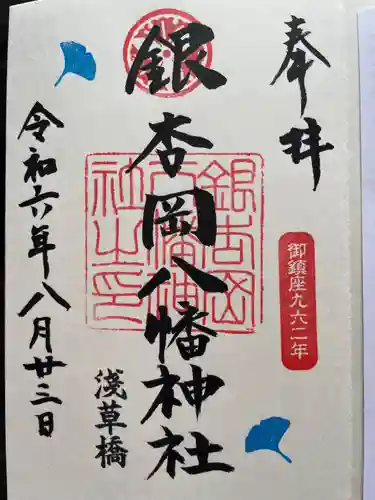 奉拝
御鎮座九六二年
銀杏岡八幡神社
銀杏岡八幡神社之印
淺草橋
令和六年八月廿三日